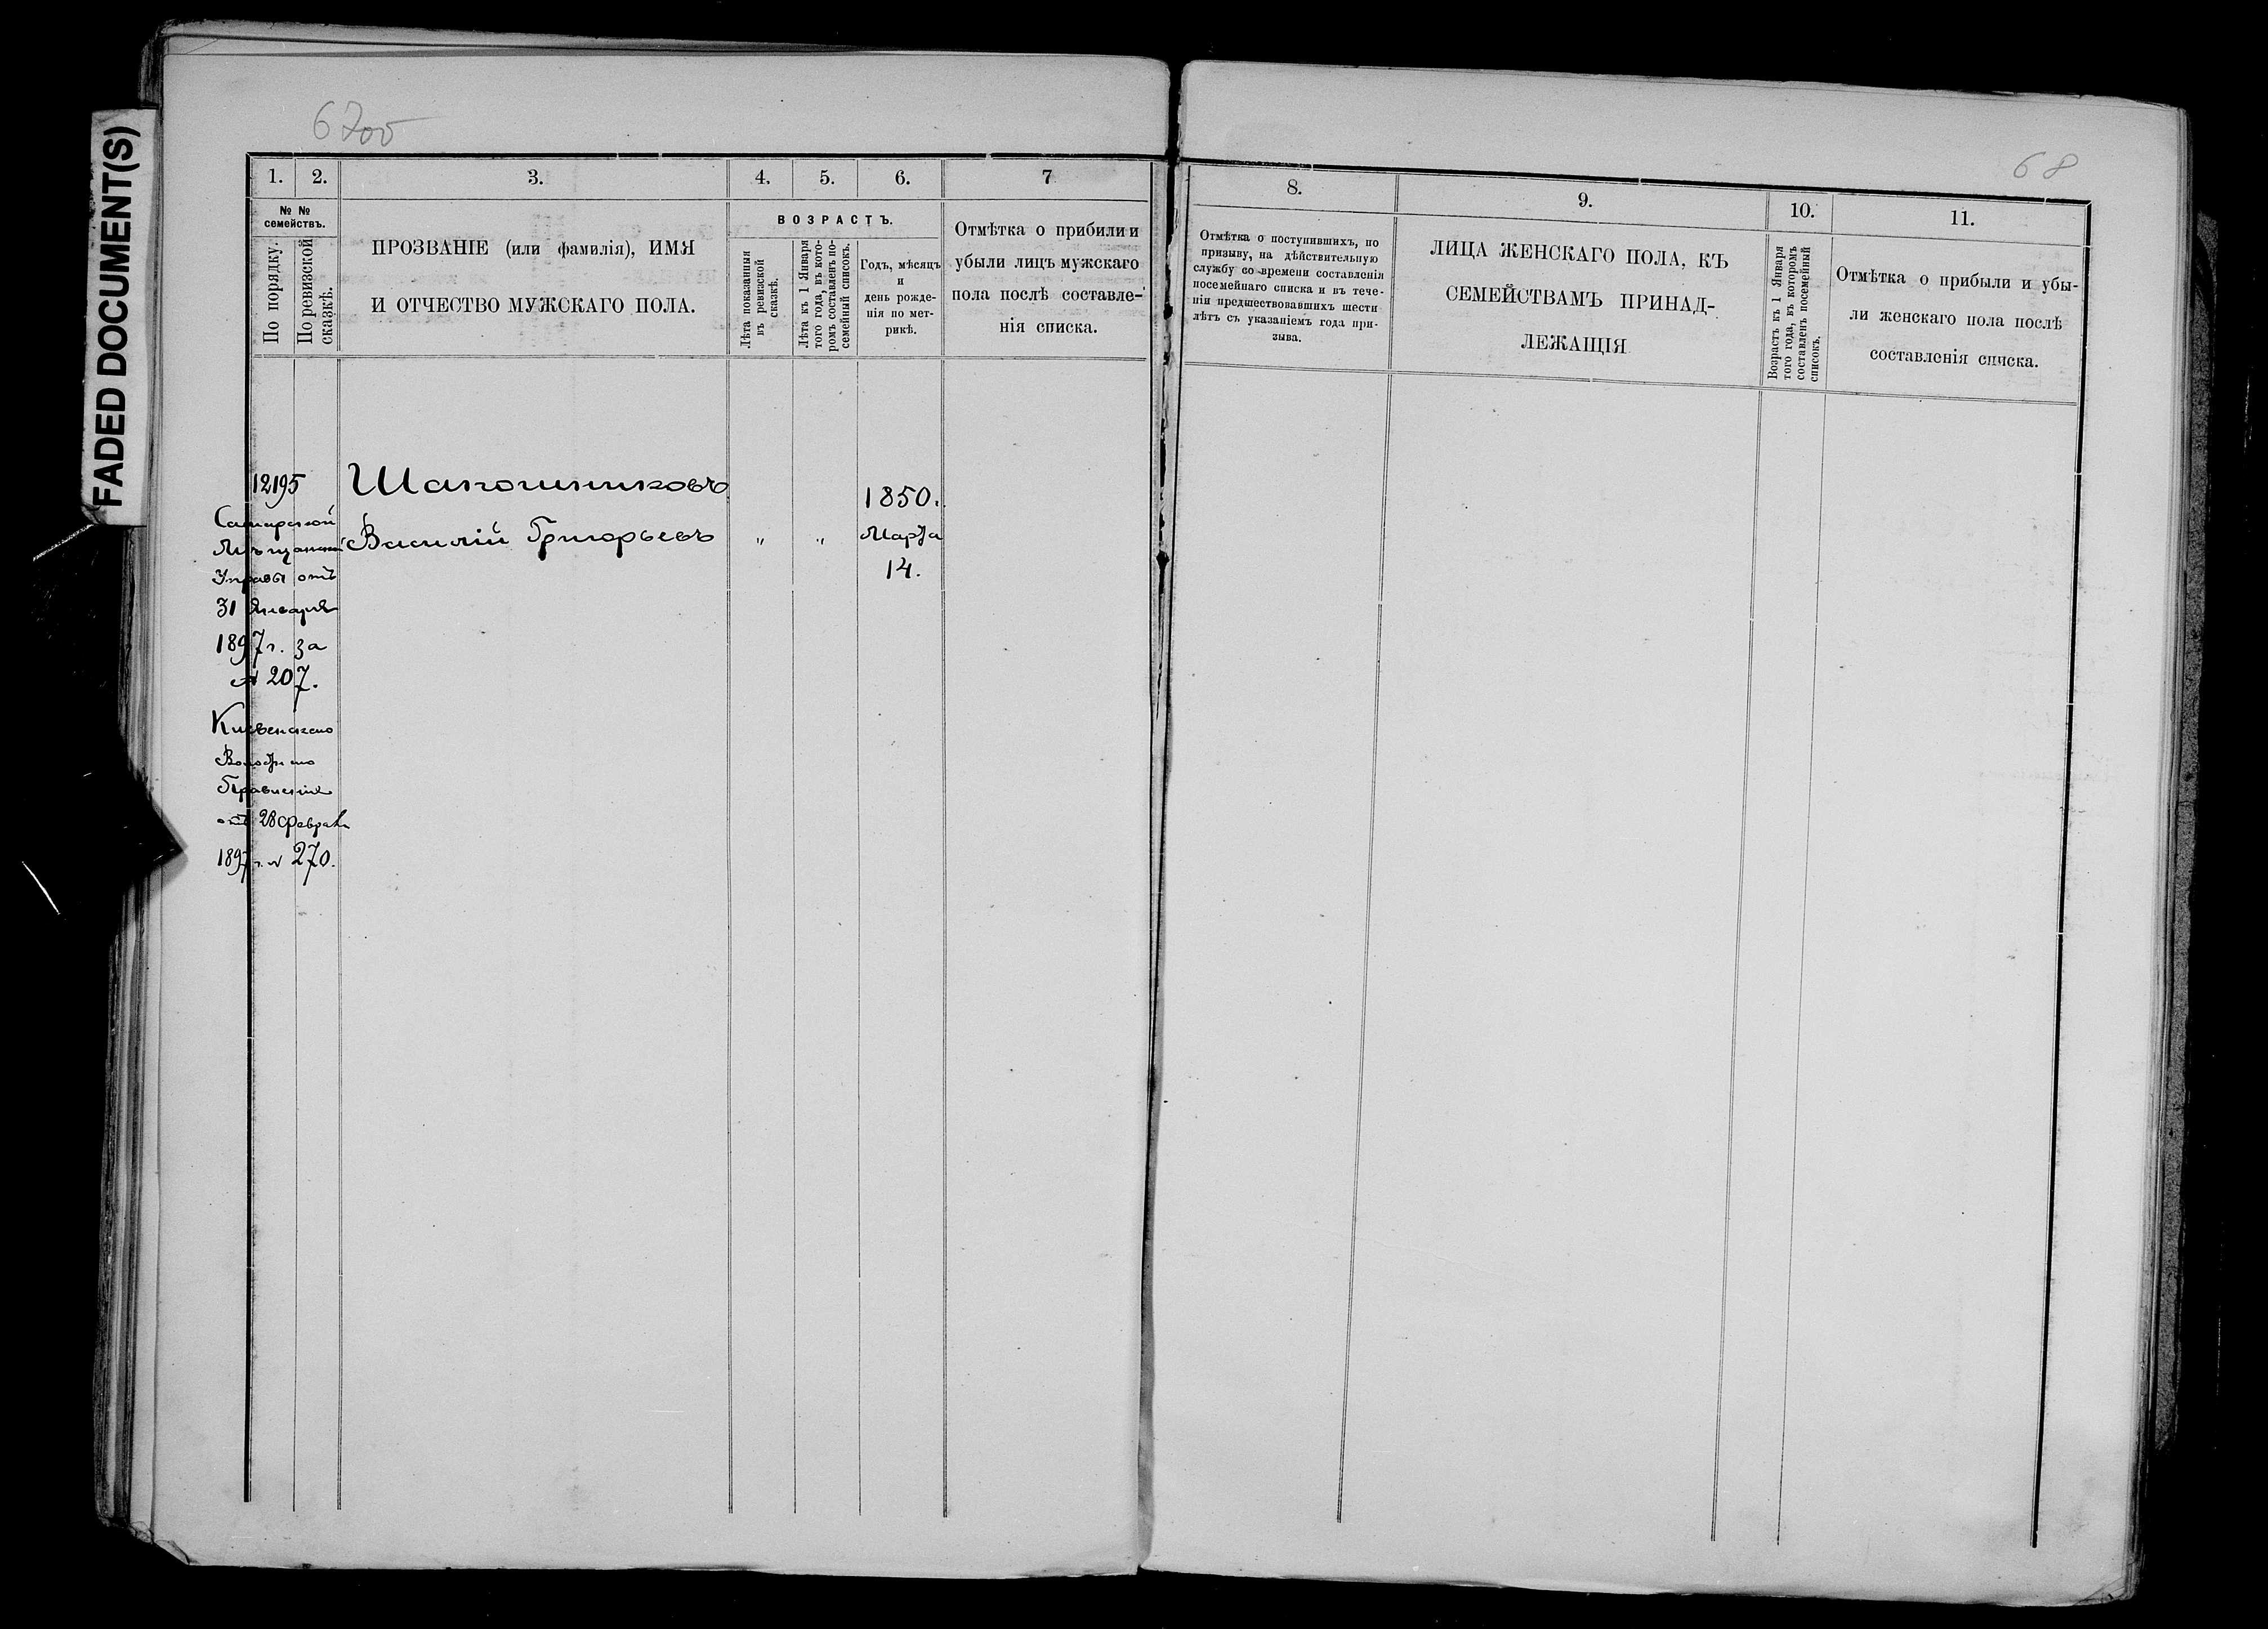 FADED DOCUMENT(S)
6700
68
1. 2. 3. 4. 5. 6. 7
№ № семействъ.
По порядку.
По ревизской сказкѣ.
ПРОЗВАНІЕ (или фамилія), ИМЯ
И ОТЧЕСТВО МУЖСКАГО ПОЛА.
ВОЗРАСТЪ.
Лѣта показанныя
въ ревизской
сказкѣ.
Лѣта къ 1 Января
того года, въ кото-
ромъ составленъ по-
семейный списокъ.
Годъ, мѣсяцъ
и
день рожде-
нія по мет-
рикѣ.
Отмѣтка о прибыли и
убыли лицъ мужскаго
пола послѣ составле-
нія списка.
8. 9. 10. 11.
Отмѣтка о поступившихъ, по
призыву, на дѣйствительную
службу со времени составленія
посемейнаго списка и въ тече-
ніи предшествовавшихъ шести
лѣтъ съ указаніемъ года при-
зыва.
ЛИЦА ЖЕНСКАГО ПОЛА, КЪ
СЕМЕЙСТВАМЪ ПРИНАД-
ЛЕЖАЩІЯ
Возрастъ къ 1 Января
того года, въ которомъ
составленъ посемейный
списокъ.
Отмѣтка о прибыли и убы-
ли женскаго пола послѣ
составленія списка.
12195 Шапошниковъ 1850.
Василій Григорьевъ " " Марта
14.
Самарской
Мѣщанской
Управы отъ
31 Января
1897 г. за
№ 207.
Волостного
Правленія
отъ 28 Февраля
1897 г. № 270.